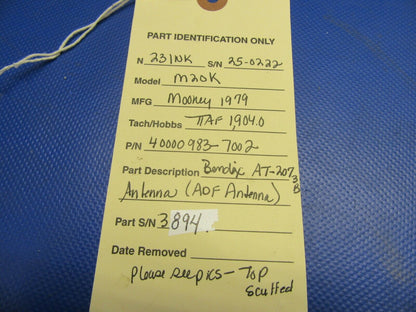 PART IDENTIFICATION ONLY
N 231NK S/N 25-0222
Model M20K
MFG Mooney 1979
Tach/Hobbs TTAF 1,904.0
P/N 40000983-7002
Part Description Bendix AT-2073B
Antenna (ADF Antenna)
Part S/N 3894
Date Removed
Please see pics - TOP
Scuffed